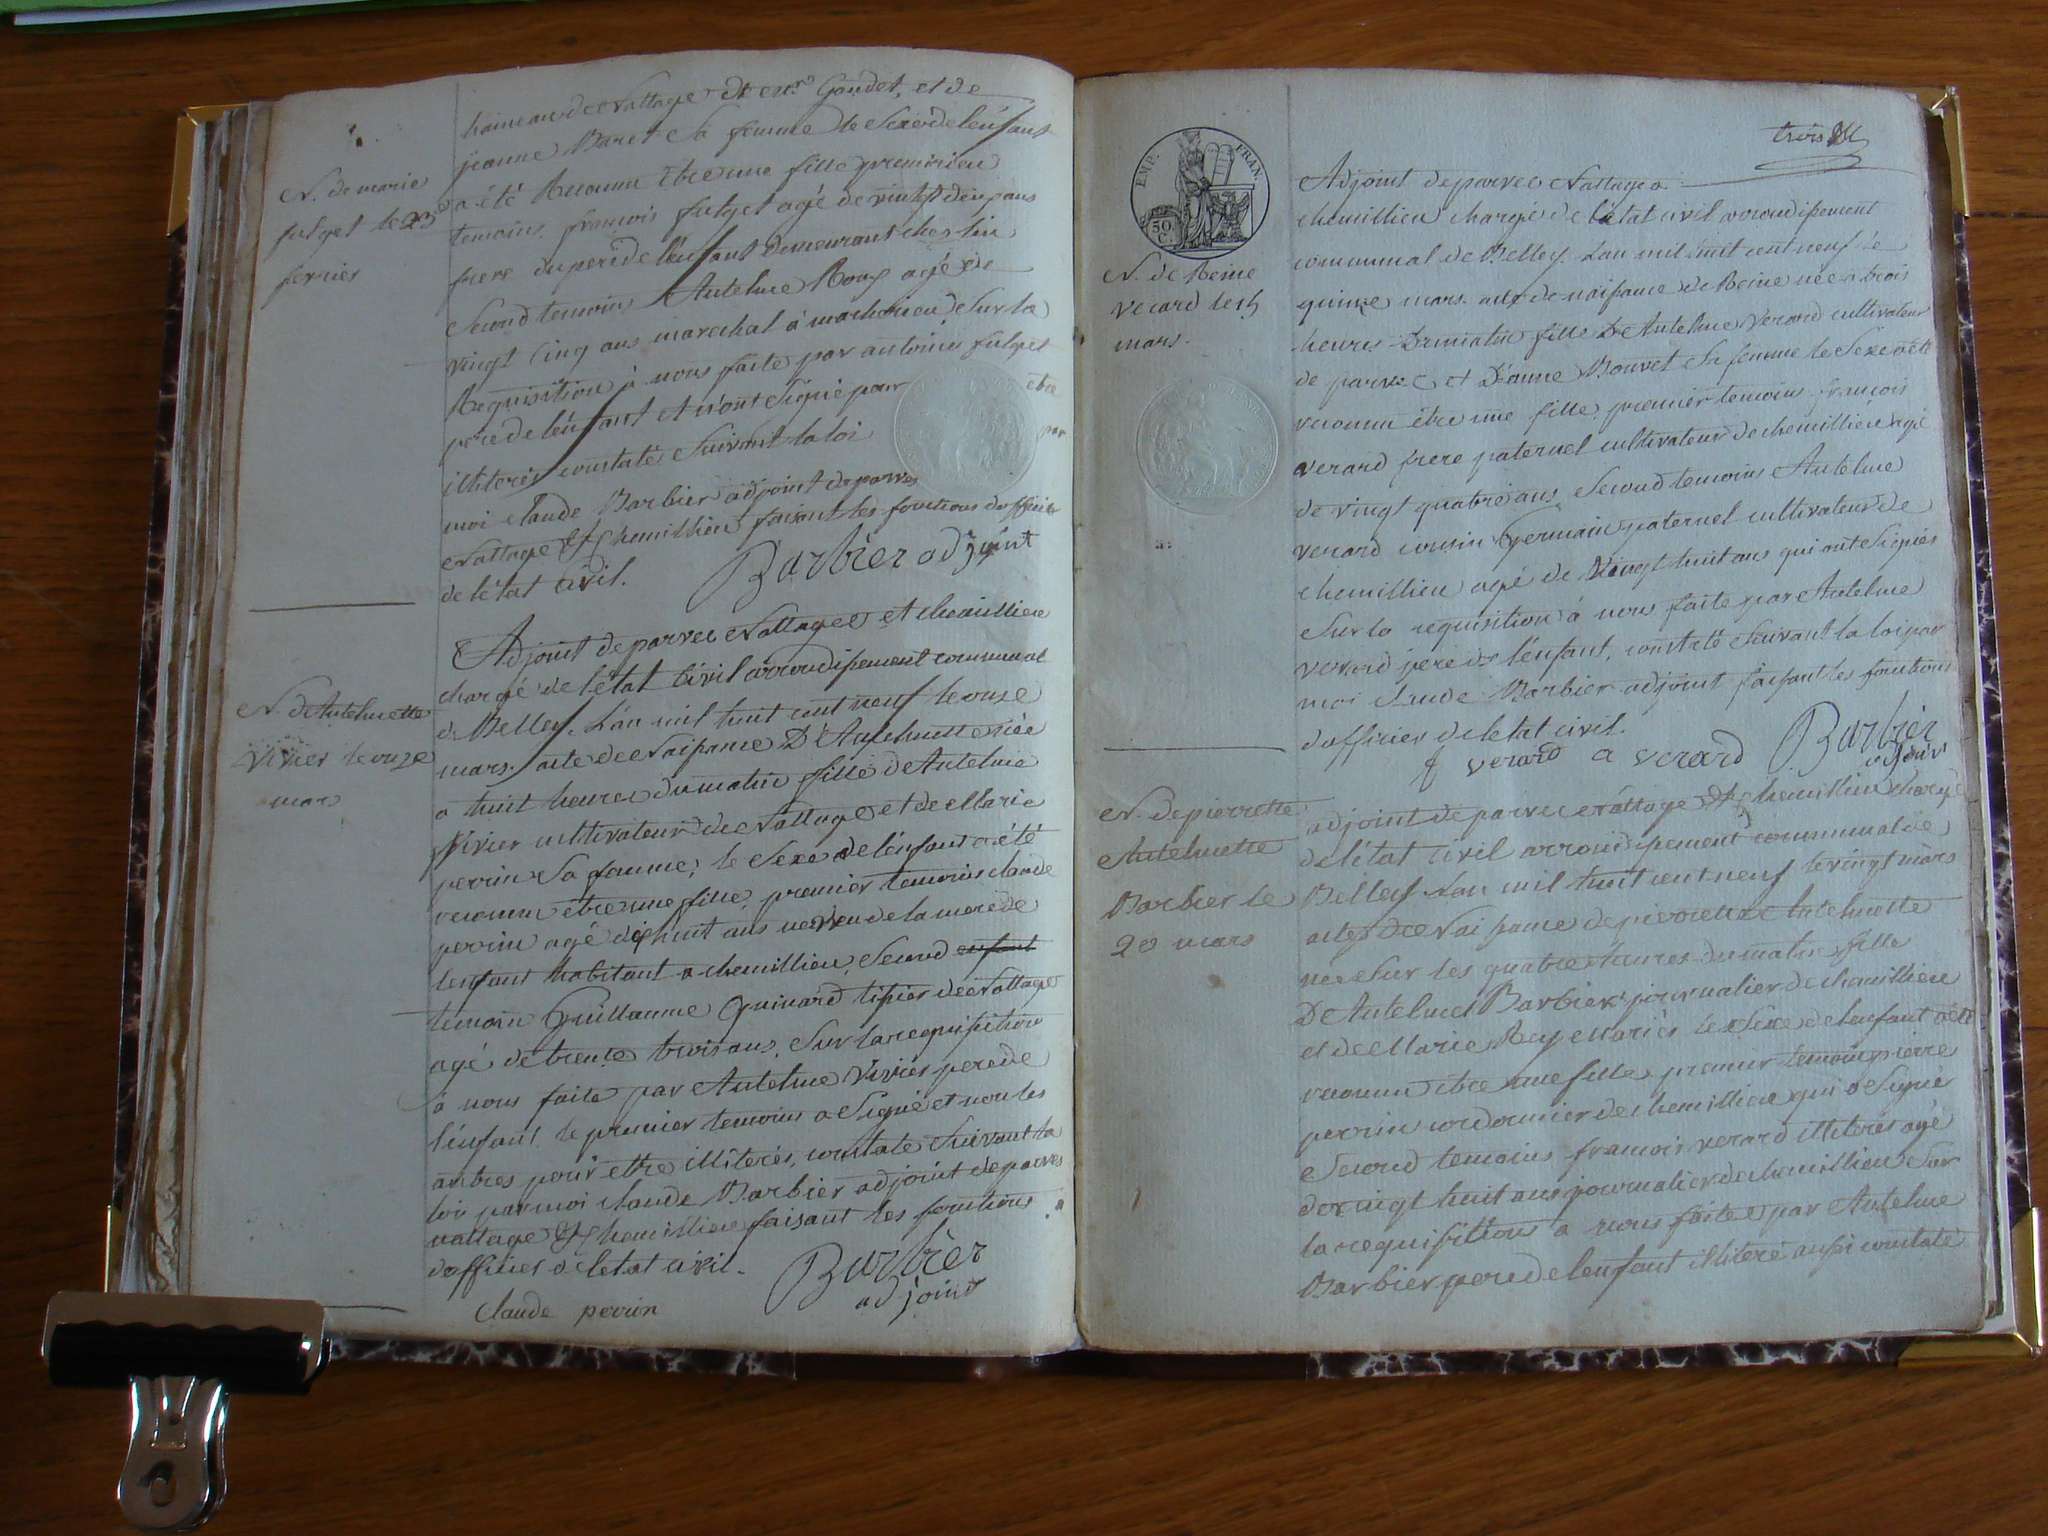 N. de marie
fulget le 23
fevrier
hameau de Nattage Gaudet, et de
jeanne Baret Sa femme le Sexe de lénfant
a été Reconnu être une fille premier
temoins françois fulget agé de vingt deux ans
frere du pere de lénfant demeurant chez lui
Second temoins Antelme Roux agé de
vingt Cinq ans marechal á Sur la
Requisition à nous faite par antoine fulget
pere de lénfant et n'ont Signé pour être
illiteres constaté Suivant la loi par
moi claude Barbier adjoint de parves
Nattage et Chemillieu faisant les fonctions d'officier
de létat civil. Barbier adjoint
N. de Antelmette
Vivier le onze
mars
Adjoint de parves Nattage et chemillieu
chargé de létat Civil arrondissement communal
de Belley. Lan mil huit cent neuf le onze
mars. acte de Naissance D'Antelmette née
a huit heures du matin fille de Antelme
Vivier cultivateur de Nattage et de Marie
perrin Sa femme, le Sexe de lénfant a été
reconnu être une fille, premier temoins claude
perrin agé dixhuit ans neveu de la mere de
lenfant habitant a chemillieu, Second enfant
témoin Guillaume Guinard tissier de Nattage
agé de trente trois ans. Sur la requisition
à nous faite par Antelme Vivier pere de
lénfant le premier temoins a Signé et non les
autres pour etre illiterés, constaté Suivant la
loi par moi claude Barbier adjoint de parves
nattage et Chemillieu faisant les fonctions
d'officier de létat civil.
claude perrin Barbier
adjoint
trois
EMP. FRAN.
50
C.
N. de Reine
Verard le 15
mars.
Adjoint de parves Nattage
chemillieu chargé de létat civil arrondissement
communal de Belley. Lan mil huit cent neuf le
quinze mars. acte de naissance de Reine née a trois
heures du matin fille D'Antelme Verard cultivateur
de parves et D'anne Bouvet Sa femme le Sexe a été
reconnu être une fille premier temoins françois
verard frere paternel cultivateur de chemillieu agé
de vingt quatre ans Second temoins Antelme
verard cousin Germain paternel cultivateur de
chemillieu agé de vingt huit ans qui ont Signés
Sur la requisition à nous faite par Antelme
verard pere de lénfant, constaté Suivant la loi par
moi claude Barbier adjoint faisant les fonctions
d'officier de létat civil.
f verard a verard Barbier
adjoint
N. de pierrette
Antelmette
Barbier le
20 mars
adjoint de parves nattage et Chemillieu chargé
de létat civil arrondissement communal de
Belley Lan mil huit cent neuf le vingt mars
acte de Naissance de pierrette Antelmette
née Sur les quatre heures du matin fille
D'Antelme Barbier journalier de chemillieu
et de Marie Rey Mariés le Sexe de lenfant a été
reconnu être une fille premier temoins pierre
perrin cordonnier de chemillieu qui a Signé
Second temoins francois verard illiteré agé
de vingt huit ans journalier de chemillieu Sur
la requisition a nous faite par Antelme
Barbier pere de lenfant illiteré aussi constaté